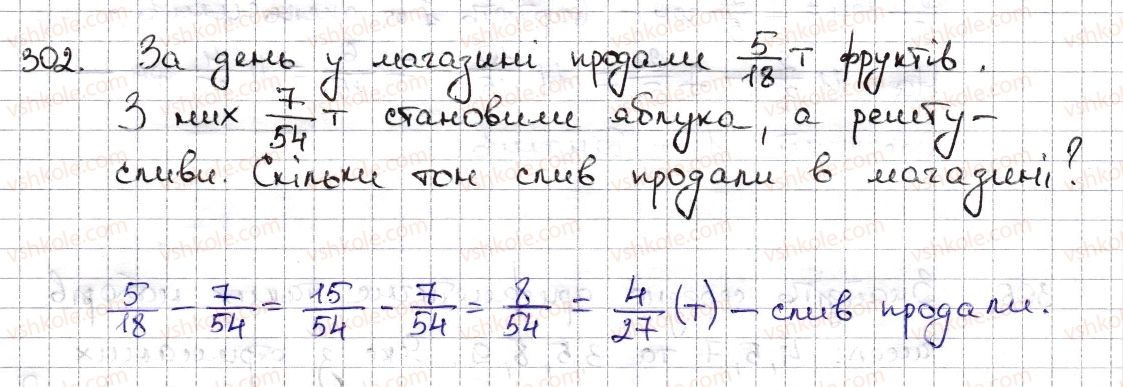 302. За день у магазині продали 5/18 т фруктів.
З них 7/54 т становили яблука, а решту –
сливи. Скільки тон слив продали в магазині?
5/18 – 7/54 = 15/54 – 7/54 = 8/54 = 4/27 (т) – слив продали.